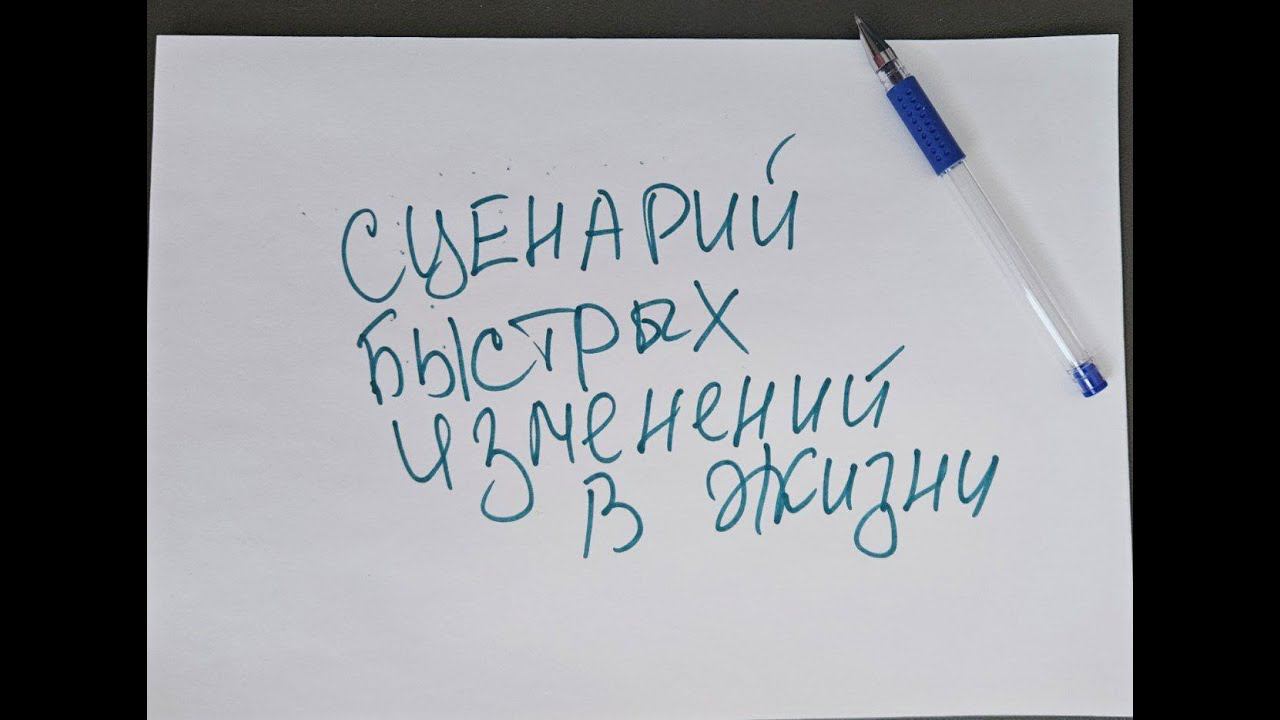 СЦЕНАРИЙ
БЫСТРЫХ
ИЗМЕНЕНИЙ
В ЖИЗНИ